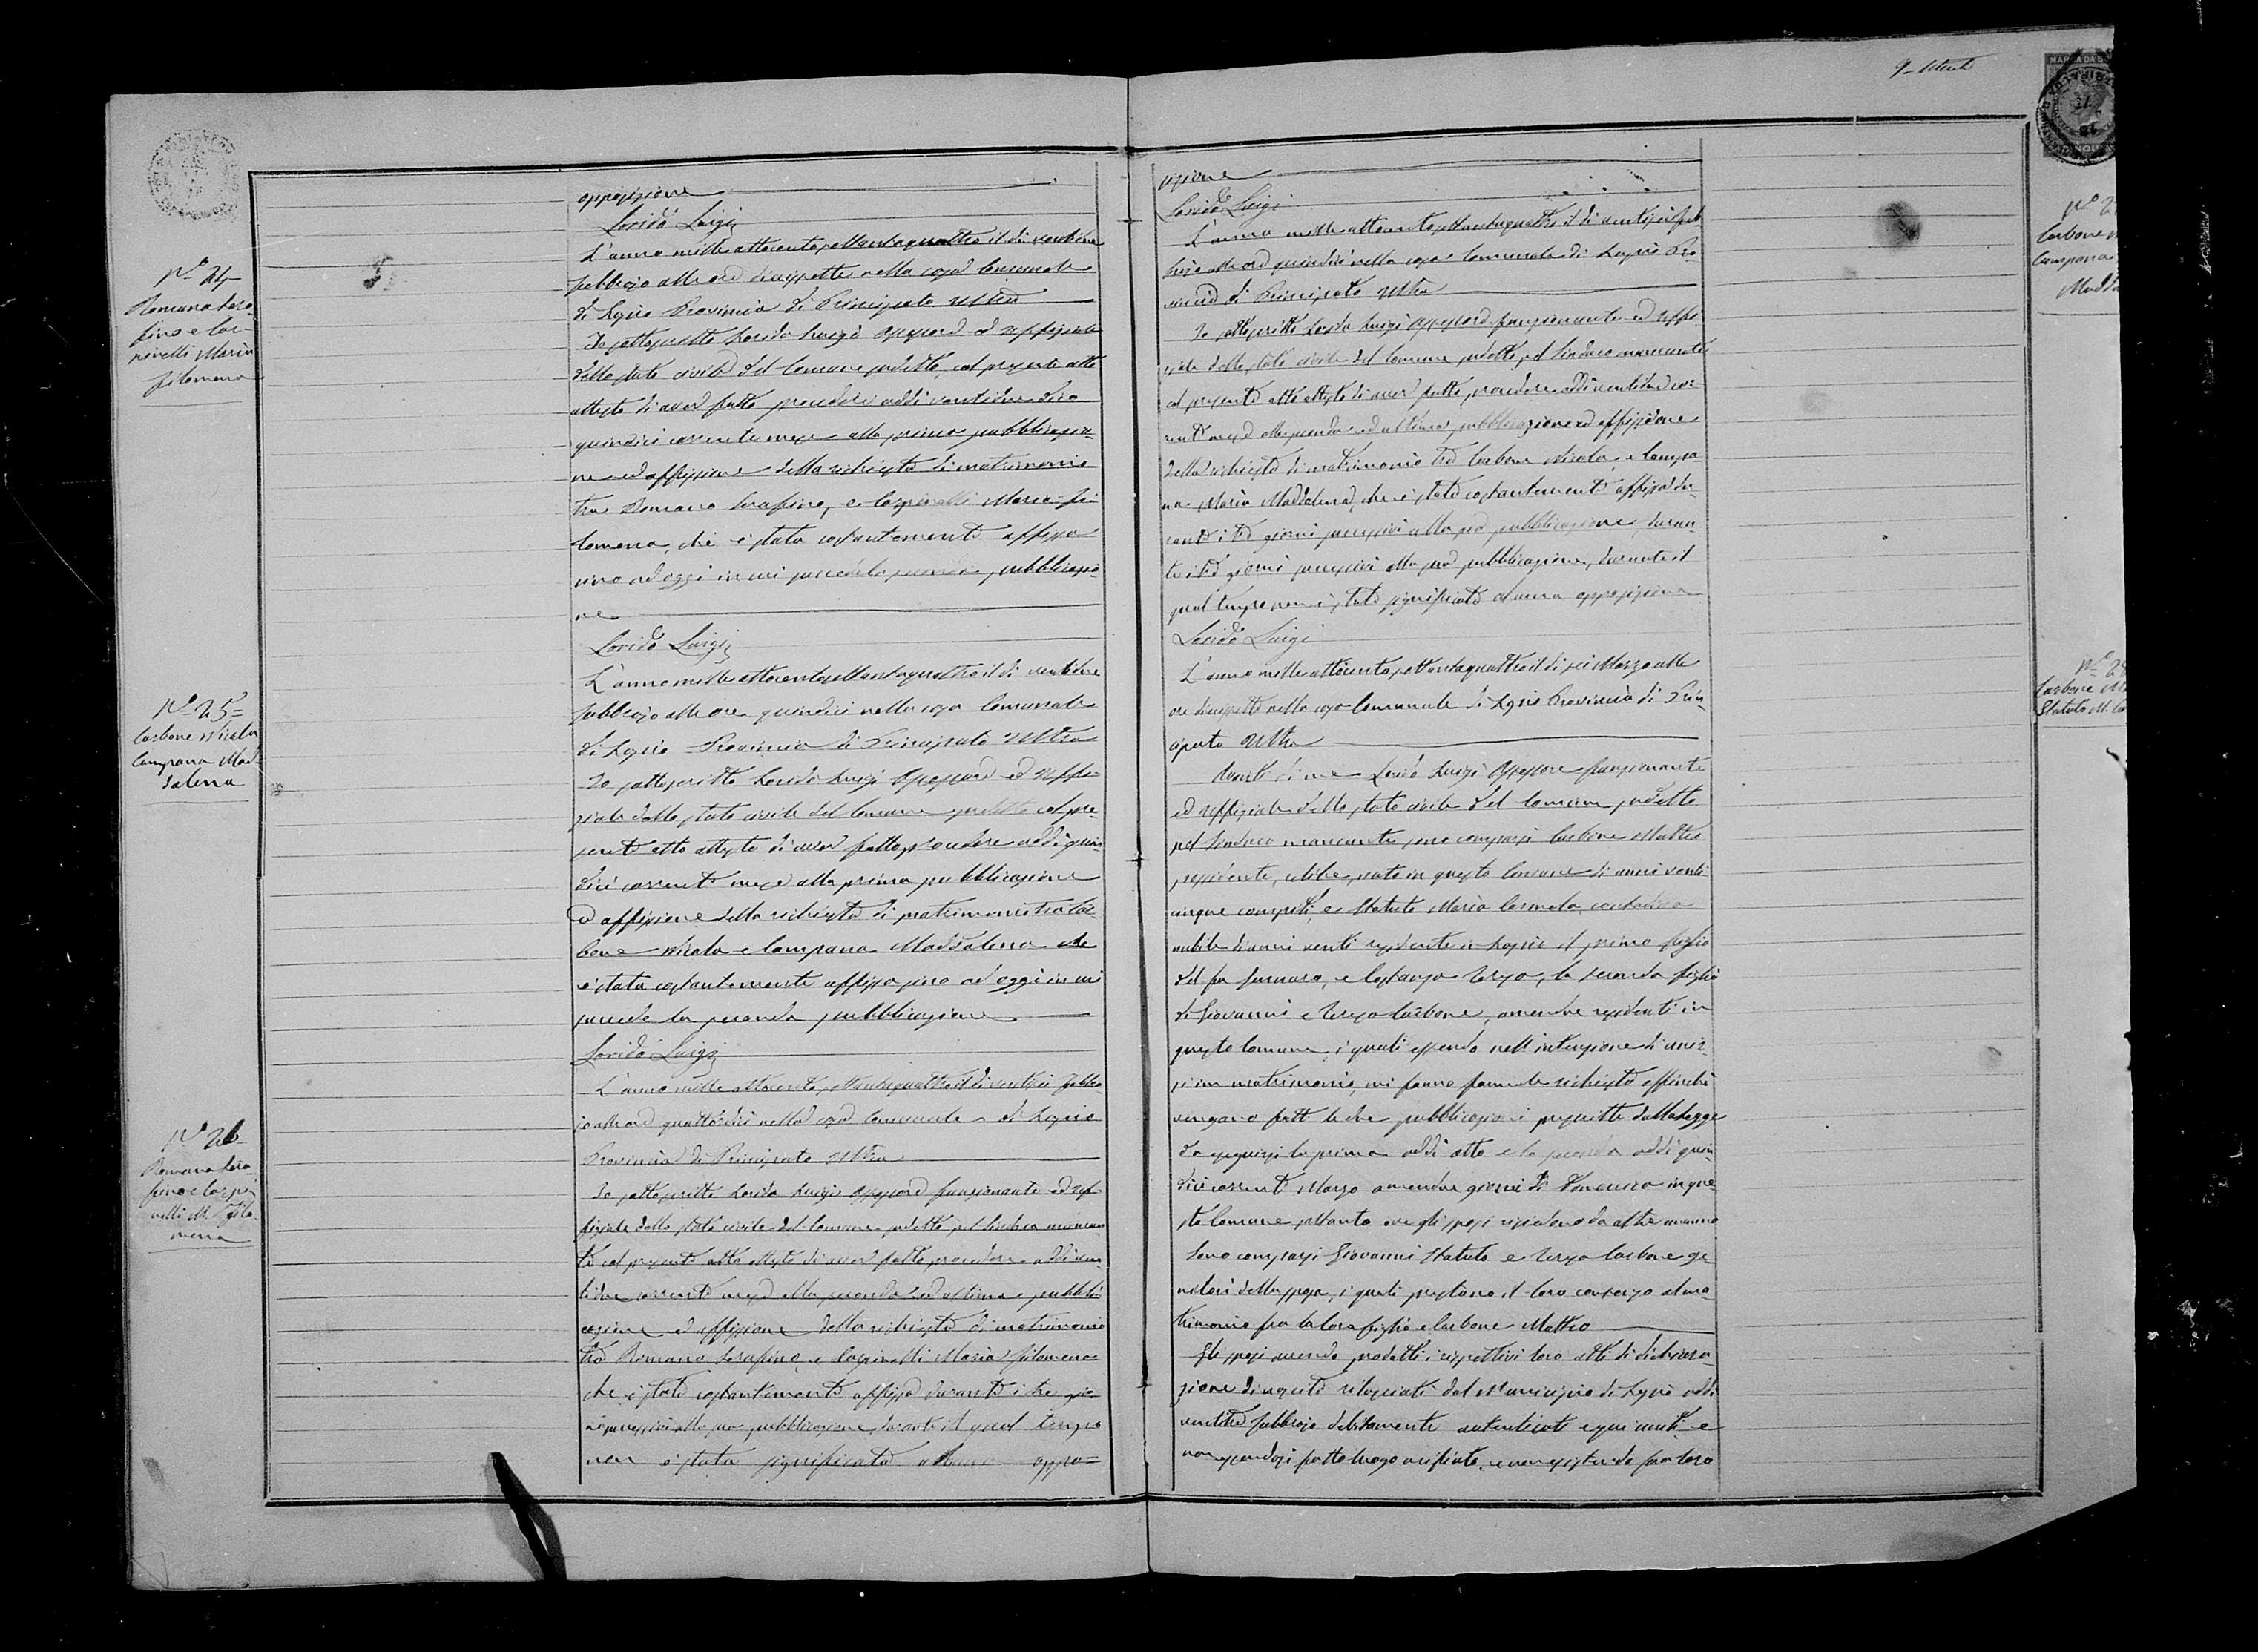 opposizione
Lorido Luigi
N° 24
Romano Sera-
fino e Car-
pinelli Maria
filomena
L'anno mille ottocento settantaquattro il di ventidue
febbrajo alle ore diciassette nella casa Comunale
di Provincia di Principato Ultra
Io sottoscritto Lorido Luigi Assessore ed Uffiziale
dello stato civile del Comune sudetto, col presente atto
attesto di aver fatto procedere addì
quindici corrente mese alla prima pubblicazio-
ne ed affissione della richiesta di matrimonio
tra Romano Serafino, e Carpinelli Maria Fi-
lomena, che è stata costantemente affissa
sino ad oggi in cui succede la seconda pubblicazio-
ne
Lorido Luigi
N° 25=
Carbone Nicola
Campana Mad-
dalena
L'anno mille ottocento settantaquattro il di ventidue
febbrajo alle ore quindici nella casa Comunale
di Provincia di Principato Ultra
Io sottoscritto Lorido Luigi Assessore ed Uffi-
ziale dello stato civile del Comune sudetto col pre-
sente atto attesto di aver fatto procedere addì quin-
dici corrente mese alla prima pubblicazione
ed affissione della richiesta di matrimonio tra Car-
bone Nicola e Campana Maddalena che
è stata costantemente affissa sino ad oggi in cui
succede la seconda pubblicazione
Lorido Luigi
N° 26
Romano Sera-
fino e Carpi-
nelli M. Filo-
mena
L'anno mille ottocento settantaquattro il di ventisei Febbra
jo alle ore quattordici nella casa Comunale di
Provincia di Principato Ultra
Io sottoscritto Lorido Luigi Assessore funzionante ed Uf-
fiziale dello stato civile del Comune sudetto, pel Sindaco mancan
te col presente atto attesto di aver fatto procedere addì ven-
tidue corrente mese alla seconda ed ultima pubbli-
cazione ed affissione della richiesta di matrimonio
tra Romano Serafino, e Carpinelli Maria Filomena
che è stata costantemente affissa durante i tre gior-
ni successivi alla sua pubblicazione, durante il qual tempo
non è stata significata alcuna oppo=
9
sizione
Lorido Luigi
L'anno mille ottocento settantaquattro il di ventisei feb-
brajo alle ore quindici nella casa Comunale di Pro
vincia di Principato Ultra
Io sottoscritto Lorido Luigi Assessore funzionante ed Uffi-
ziale dello stato civile del Comune sudetto, pel Sindaco mancante
col presente atto attesto di aver fatto procedere addì ventidue cor-
rente mese alla seconda ed ultima pubblicazione ed affissione
della richiesta di matrimonio tra Carbone Nicola e Campa-
na Maria Maddalena, che è stata costantemente affissa du-
rante i tre giorni successivi alla sua pubblicazione, duran-
te i tre giorni successivi alla sua pubblicazione, durante il
qual tempo non è stata significata alcuna opposizione
Lorido Luigi
L'anno mille ottocento settantaquattro il di sei Marzo alle
ore diciassette nella casa Comunale di Provincia di Prin-
cipato Ultra
Avanti di me Lorido Luigi Assessore funzionante
ed Uffiziale dello stato civile del Comune sudetto
pel Sindaco mancante, sono comparsi Carbone Matteo
possidente, celibe, nato in questo Comune di anni venti
cinque compiti, e Statuto Maria Carmela, contadina
nubile di anni venti residente in il primo figlio
del fu Gennaro, e Costanza la seconda figlia
di Giovanni e Teresa Carbone, amendue residenti in
questo Comune, i quali essendo nell'intenzione di unir-
si in matrimonio, mi fanno formale richiesta affinchè
vengano fatte le due pubblicazioni prescritte dalla Legge
da eseguirsi la prima addì otto e la seconda addì quin-
dici corrente Marzo amendue giorni di Domenica in que-
sto Comune soltanto ove gli sposi risiedono da oltre un anno
Sono comparsi Giovanni Statuto e Teresa Carbone ge
nitori della sposa, i quali prestano il loro consenso al ma-
trimonio fra la loro figlia e Carbone Matteo
Gli sposi avendo prodotti i rispettivi loro atti di
di nascita rilasciati dal Municipio di addì
febbrajo debitamente autenticati e e
non essendosi fatto luogo a rifiuto, e non esistendo fra loro
N° 2
Carbone N
Campana
Madda
N° 28
Carbone M
Statuto M. Ca
MARCA DA B